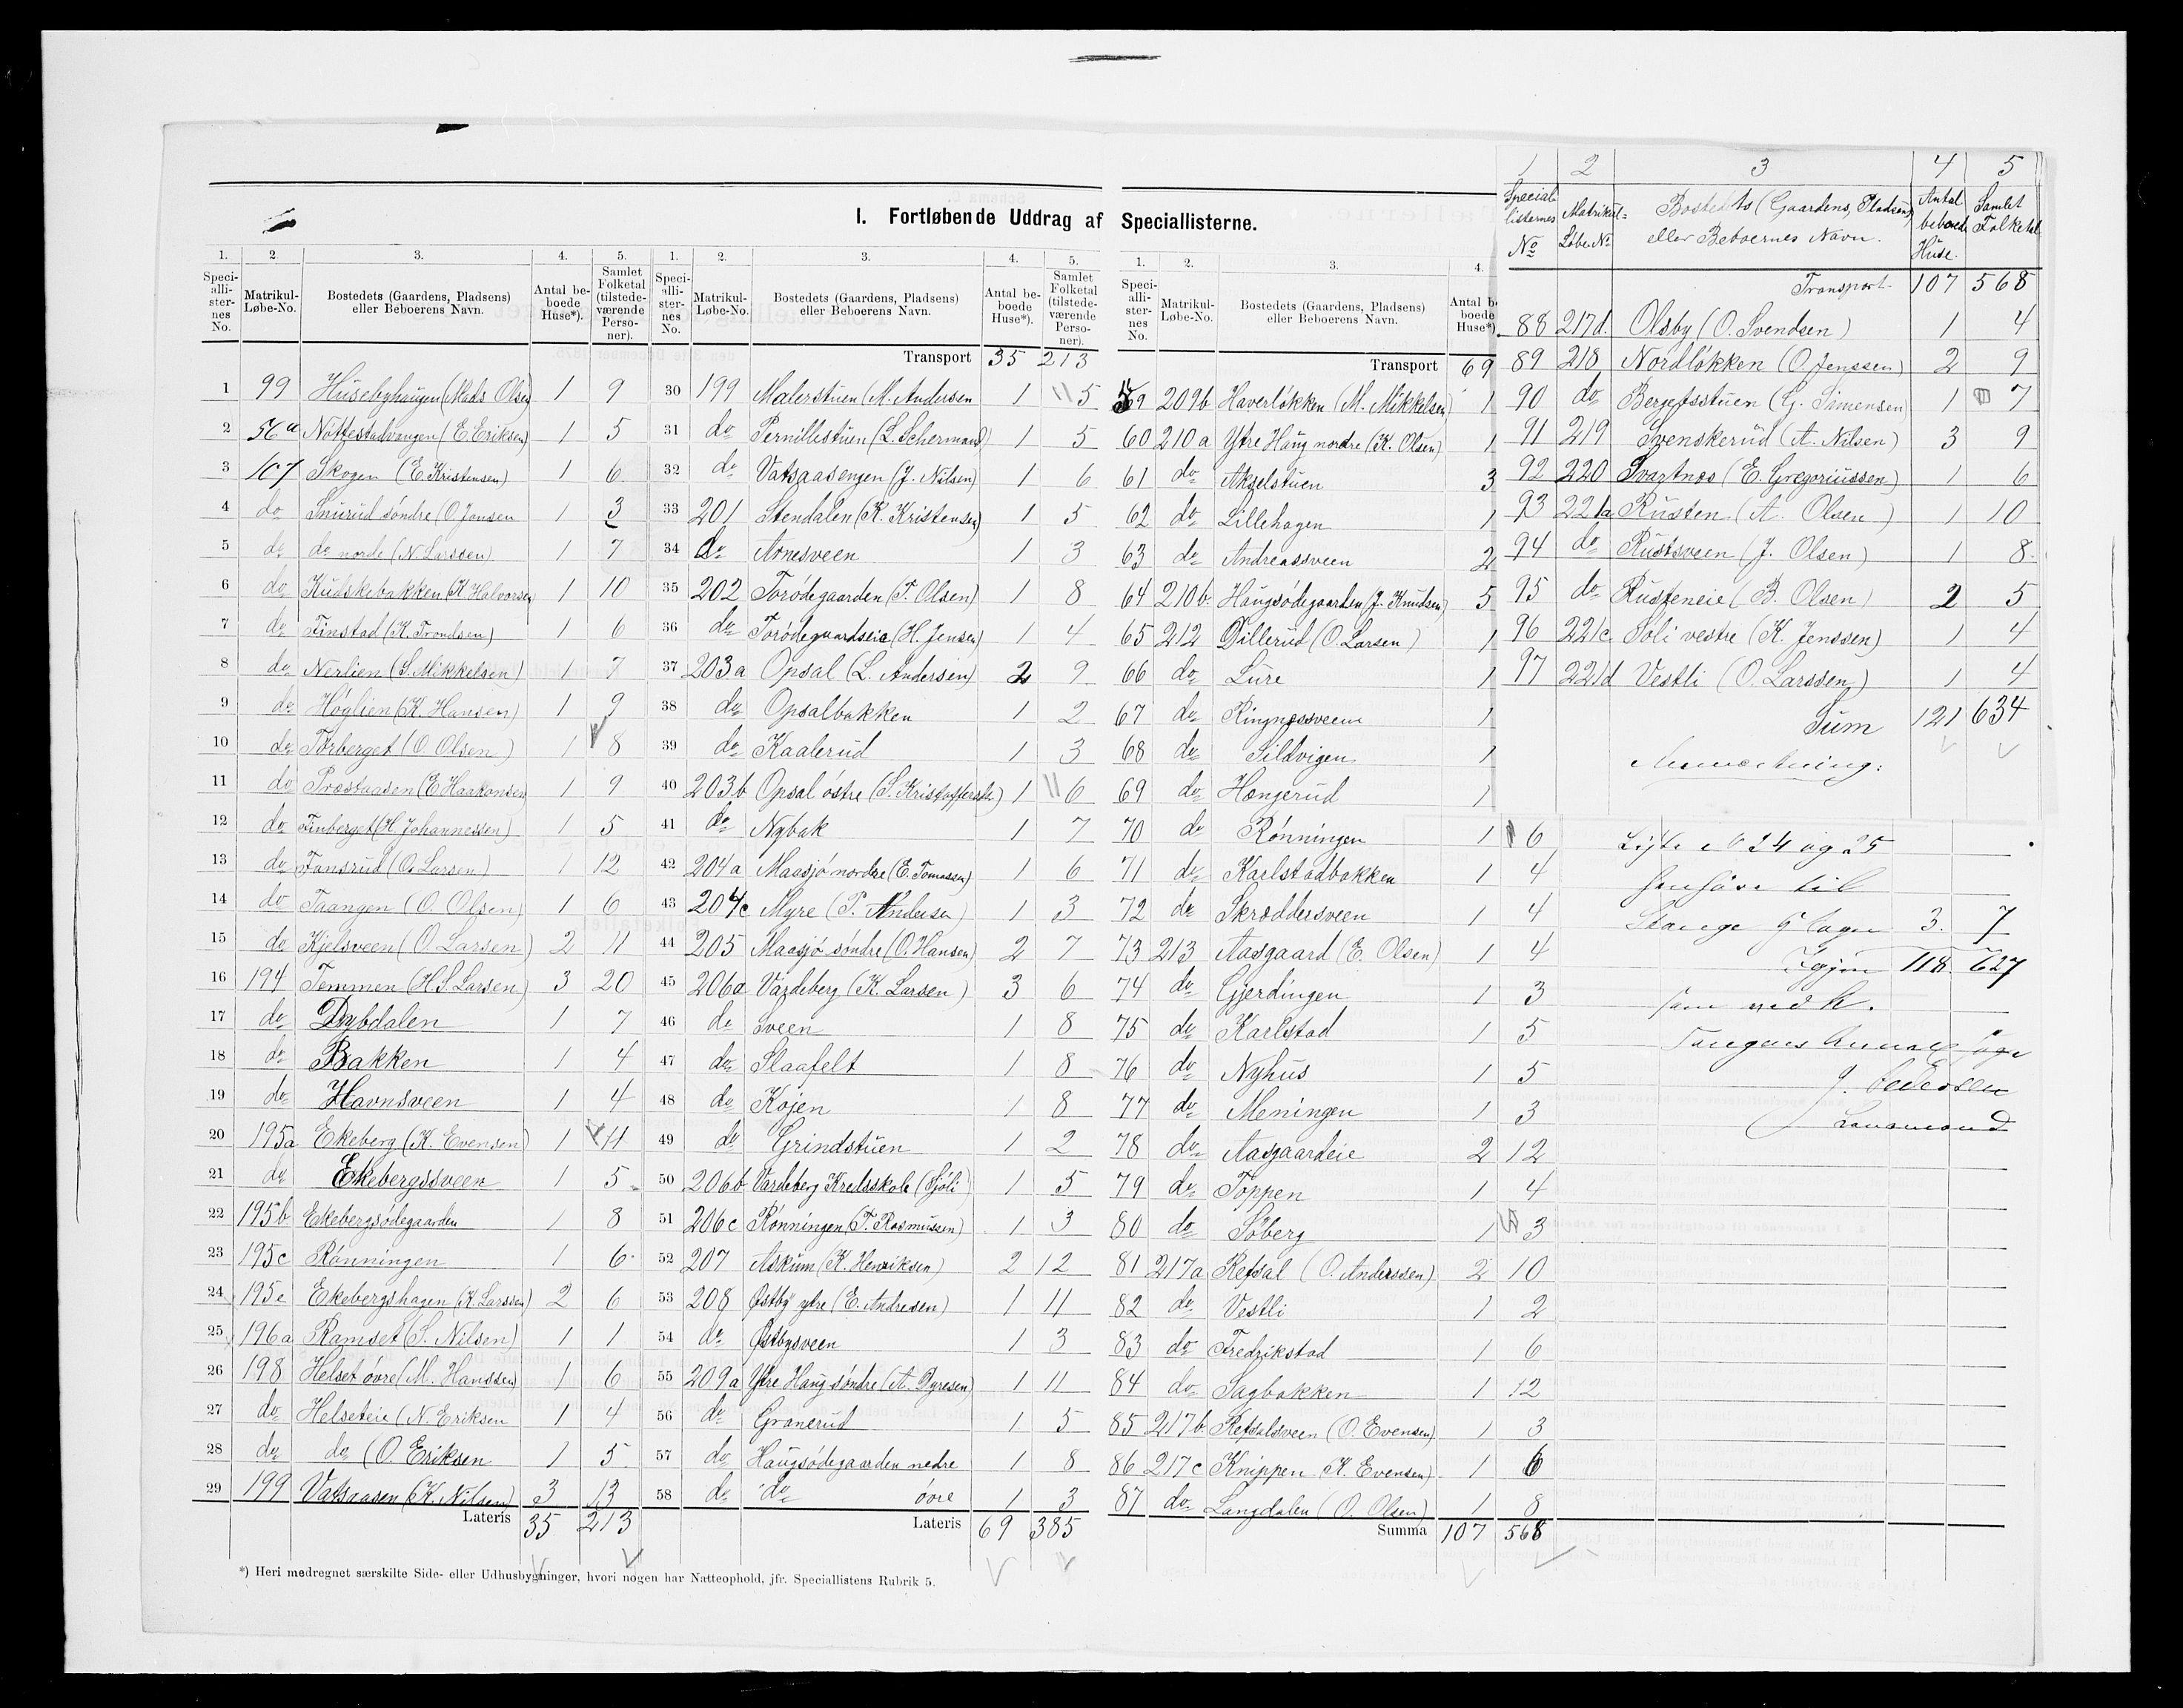 I. Fortløbende Uddrag af Speciallisterne.
1. 2. 3. 4. 5.
Speci-alli-ster-nes No. Matrikul-Løbe-No. Bostedets (Gaardens, Pladsens) eller Beboerens Navn. Antal be-boede Huse*). Samlet Folketal (tilstede-værende Perso-ner).
1 99 Husebyhaugen (Mads Olsen) 1 9
2 56a Nøttestadvangen (E. Eriksen) 1 5
3 107 Skogen (E. Kristensen) 1 6
4 do Snurud søndre (O. Jonsen 1 3
5 do do nordre (N. Larssen) 1 7
6 do Kudskebakken (K. Halvorsen) 1 10
7 do Finstad (K. Trondsen) 1 6
8 do Nerlien (S. Mikkelsen) 1 7
9 do Høglien (K. Hansen) 1 9
10 do Torberget (O. Olsen) 1 8
11 do Prostaasen (E. Haakonsen 1 9
12 do Finberget (H. Johannessen) 1 5
13 do Fansrud (O. Larsen) 1 12
14 do Taangen (O. Olsen) 1 6
15 do Kjelsveen (O. Larsen) 2 11
16 194 Temmen (H. S. Larsen) 3 20
17 do Dybdalen 1 7
18 do Bakken 1 4
19 do Havnsveen 1 4
20 195a Ekeberg (K. Evensen) 1 11
21 do Ekebergssveen 1 5
22 195b Ekebergsødegaarden 1 8
23 195c Rønningen 1 6
24 195e Ekebergshagen (K. Larssen) 2 6
25 196a Ramset (S. Nilsen) 1 1
26 198 Helset øvre (M. Hanssen) 1 6
27 do Helseteie (N. Eriksen 1 4
28 do do (O. Eriksen 1 5
29 199 Vatsaasen (K. Nilsen) 3 13
Lateris 35 213
1. 2. 3. 4. 5.
Speci-alli-ster-nes No. Matrikul-Løbe-No. Bostedets (Gaardens, Pladsens) eller Beboerens Navn. Antal be-boede Huse*). Samlet Folketal (tilstede-værende Perso-ner).
Transport 35 213
30 199 Malerstuen (M. Andersen 1 5
31 do Pernillestuen (L. Schermand) 1 5
32 do Vatsaasengen (J. Nilsen) 1 6
33 201 Stendalen (K. Kristensen) 1 5
34 do Arnesveen 1 3
35 202 Torødegaarden (T. Olsen) 1 8
36 do Torødegaardseie (H. Jensen) 1 4
37 203a Opsal (L. Andersen) 2 9
38 do Opsalbakken 1 2
39 do Kaalerud 1 3
40 203b Opsal østre (S. Kristoffersen) 1 6
41 do Nybak 1 7
42 204a Maasjø nordre (E. Tomassen) 1 6
43 204c Myre (P. Andersen) 1 3
44 205 Maasjø søndre (O. Hansen) 2 7
45 206a Vardeberg (K. Larsen) 3 6
46 do Sveen 1 8
47 do Slaafelt 1 8
48 do Kojen 1 8
49 do Grindstuen 1 2
50 206b Vardeberg Kredsskole (Sjøli) 1 5
51 206c Rønningen (T. Rasmussen) 1 3
52 207 Askum (K. Henriksen) 2 12
53 208 Østby ytre (E. Andresen) 1 11
54 do Østbysveen 1 3
55 209a Ytre Haug søndre (A. Dyresen) 1 11
56 do Granerud 1 5
57 do Haugsødegaarden nedre 1 8
58 do do øvre 1 3
Lateris 69 385
1. 2. 3. 4.
Speci-alli-ster-nes No. Matrikul-Løbe-No. Bostedets (Gaardens, Pladsens) eller Beboerens Navn. Antal b boede Huse*)
Transport 69
59 209b Haverløkken (M. Mikkelsen) 1
60 210a Ytre Haug nordre (K. Olsen) 1
61 do Akselstuen 3
62 do Lillehagen 1
63 do Andreassveen 2
64 210b Haugsødegaarden (J. Knudsen) 5
65 212 Dillerud (O. Larsen) 1
66 do Lure 1
67 do Ringnessveen 1
68 do Sildvigen 1
69 do Hongerud 1
70 do Rønningen 1 6
71 do Karlstadbakken 1 4
72 do Skræddersveen 1 4
73 213 Aasgaard (E. Olsen) 1 4
74 do Gjerdingen 1 3
75 do Karlstad 1 5
76 do Nyhus 1 5
77 do Meningen 1 3
78 do Aasgaardeie 2 12
79 do Toppen 1 4
80 do Søberg 1 3
81 217a Refsal (O. Anderssen) 2 10
82 do Vestli 1 2
83 do Fredrikstad 1 6
84 do Sagbakken 1 12
85 217b Refsalsveen (O. Evensen) 1 3
86 217c Knippen K. Evensen) 1 6
87 do Langdalen (O. Olsen) 1 8
Summa 107 568
1 2 3 4 5
Special-listernes No Matrikul-Løbe No Bostedets (Gaardens, Pladsens) eller Beboernes Navn. Antal beboede Huse. Samlet Folketal
Transport 107 568
88 217d. Olsby (O. Svendsen) 1 4
89 218 Nordløkken (O. Jenssen) 2 9
90 do Bergetsstuen (G. Simensen) 1 7
91 219 Svenskerud (A. Nilsen) 3 9
92 220 Svartnes (E. Gregoriussen) 1 6
93 221a Rusten (A. Olsen) 1 10
94 do Rustsveen (J. Olsen) 1 8
95 do Rusteneie (B. Olsen) 2 5
96 221c Soli vestre (K. Jenssen) 1 4
97 221d Vestli (O. Larssen) 1 4
Sum 121 634
Anmærkning:
Liste No 24 og 25
henhøre til
Stange 3. 7
Igjen 118. 627
som vedk.
J. Pedersen
Lensmand
*) Heri medregnet særskilte Side- eller Udhusbygninger, hvori nogen har Natteophold, jfr. Speciallistens Rubrik 5.